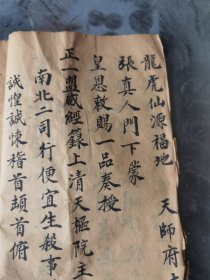 龍虎仙源福地　天師府
張真人門下蒙
皇恩敕賜一品奏授
正一盟威經籙上清天樞院主
南北二司行便宜生殺事
誠惶誠悚稽首頡首俯